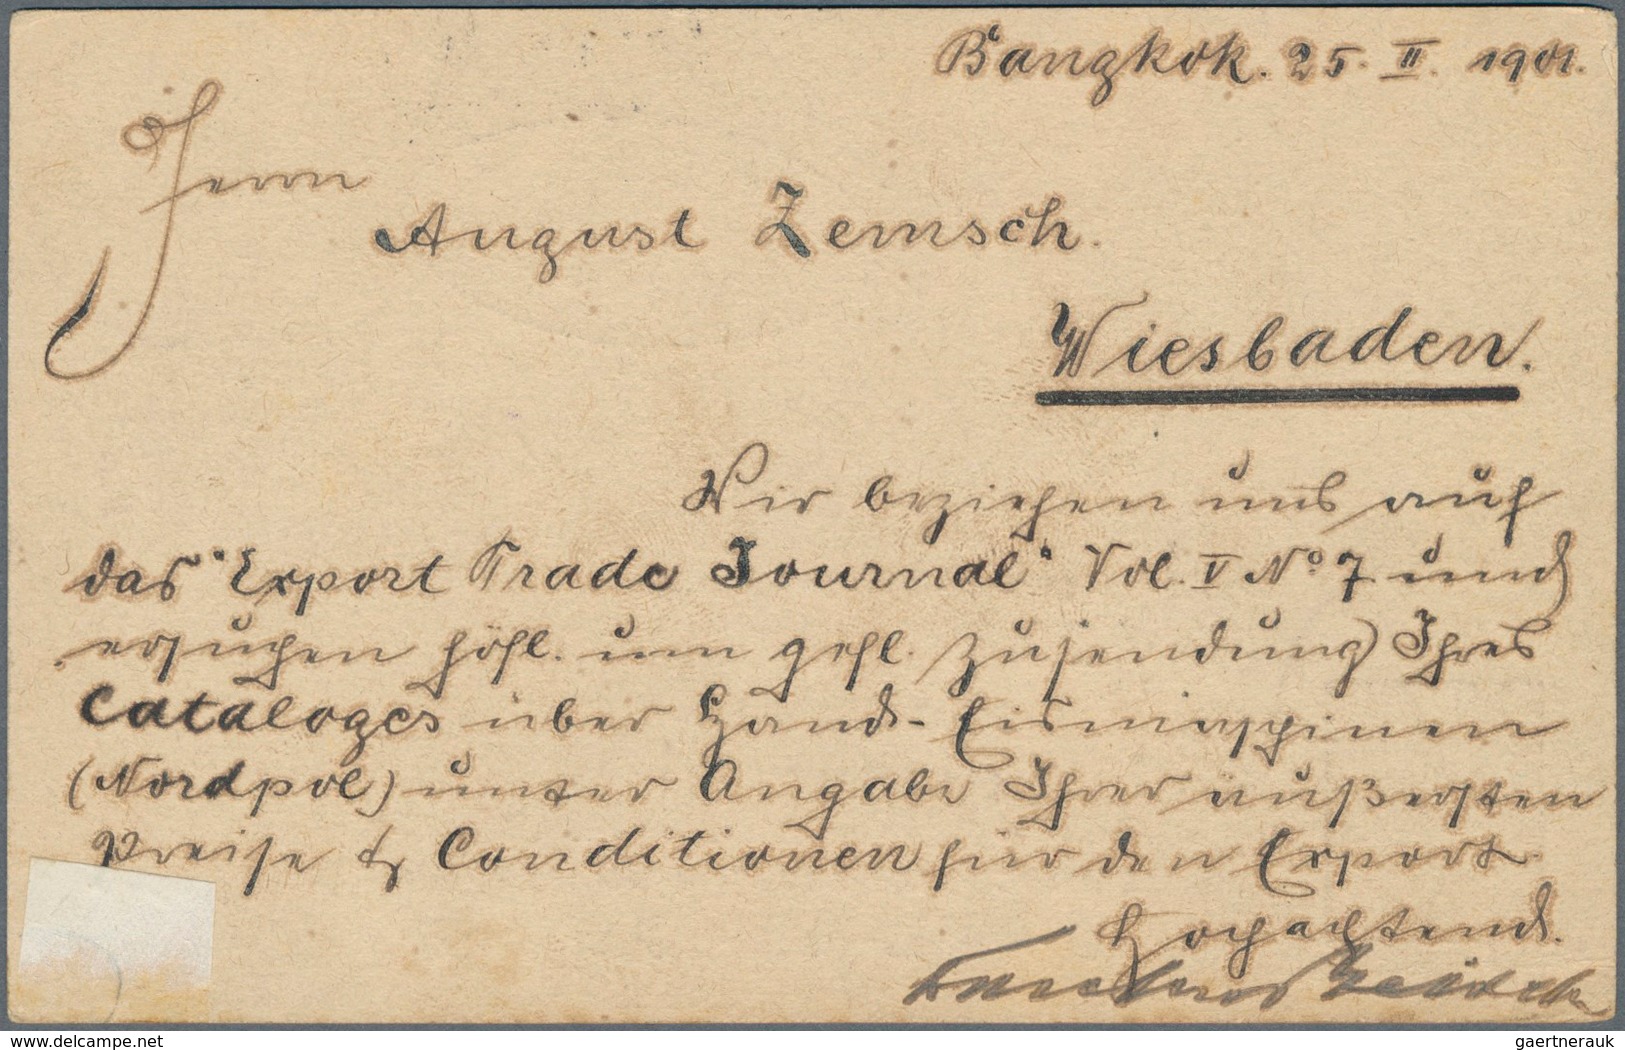 Bangkok. 25. II. 1901.
Herrn
August Zemsch.
Wiesbaden.
Wir beziehen uns auf
das "Export Trade Journal" Vol. V No 7 und
ersuchen höfl. um gefl. Zusendung Ihres
Cataloges über Hand-Eismaschinen
(Nordpol) unter Angabe Ihrer äußersten
Preise & Conditionen für den Export.
Hochachtend.
delcampe.net
gaertnerauk